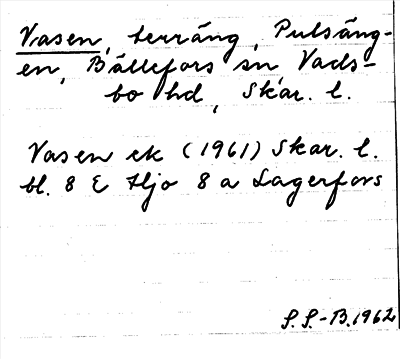 Vasen, terräng, Pulsäng-
en, Bällefors sn Vads-
bo hd, Skar. l.
Vasen ek (1961) Skar. l.
bl. 8 E Hjo 8 a Lagerfors
S. S.-B. 1962